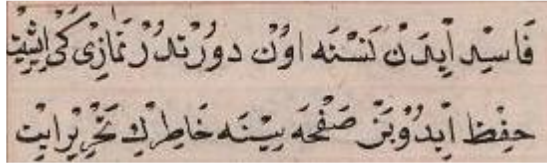 فَاسِد اَيدَنْ نَسْنَه اوُنْ دوُرْتدُرْ نَمَازِى كَىْ اِيشِيتْ
حِفْظ اَيدُوبَنْ صَفْحَه سِينَه خَاطِرِكْ تَحْرِيرْ اَيتْ